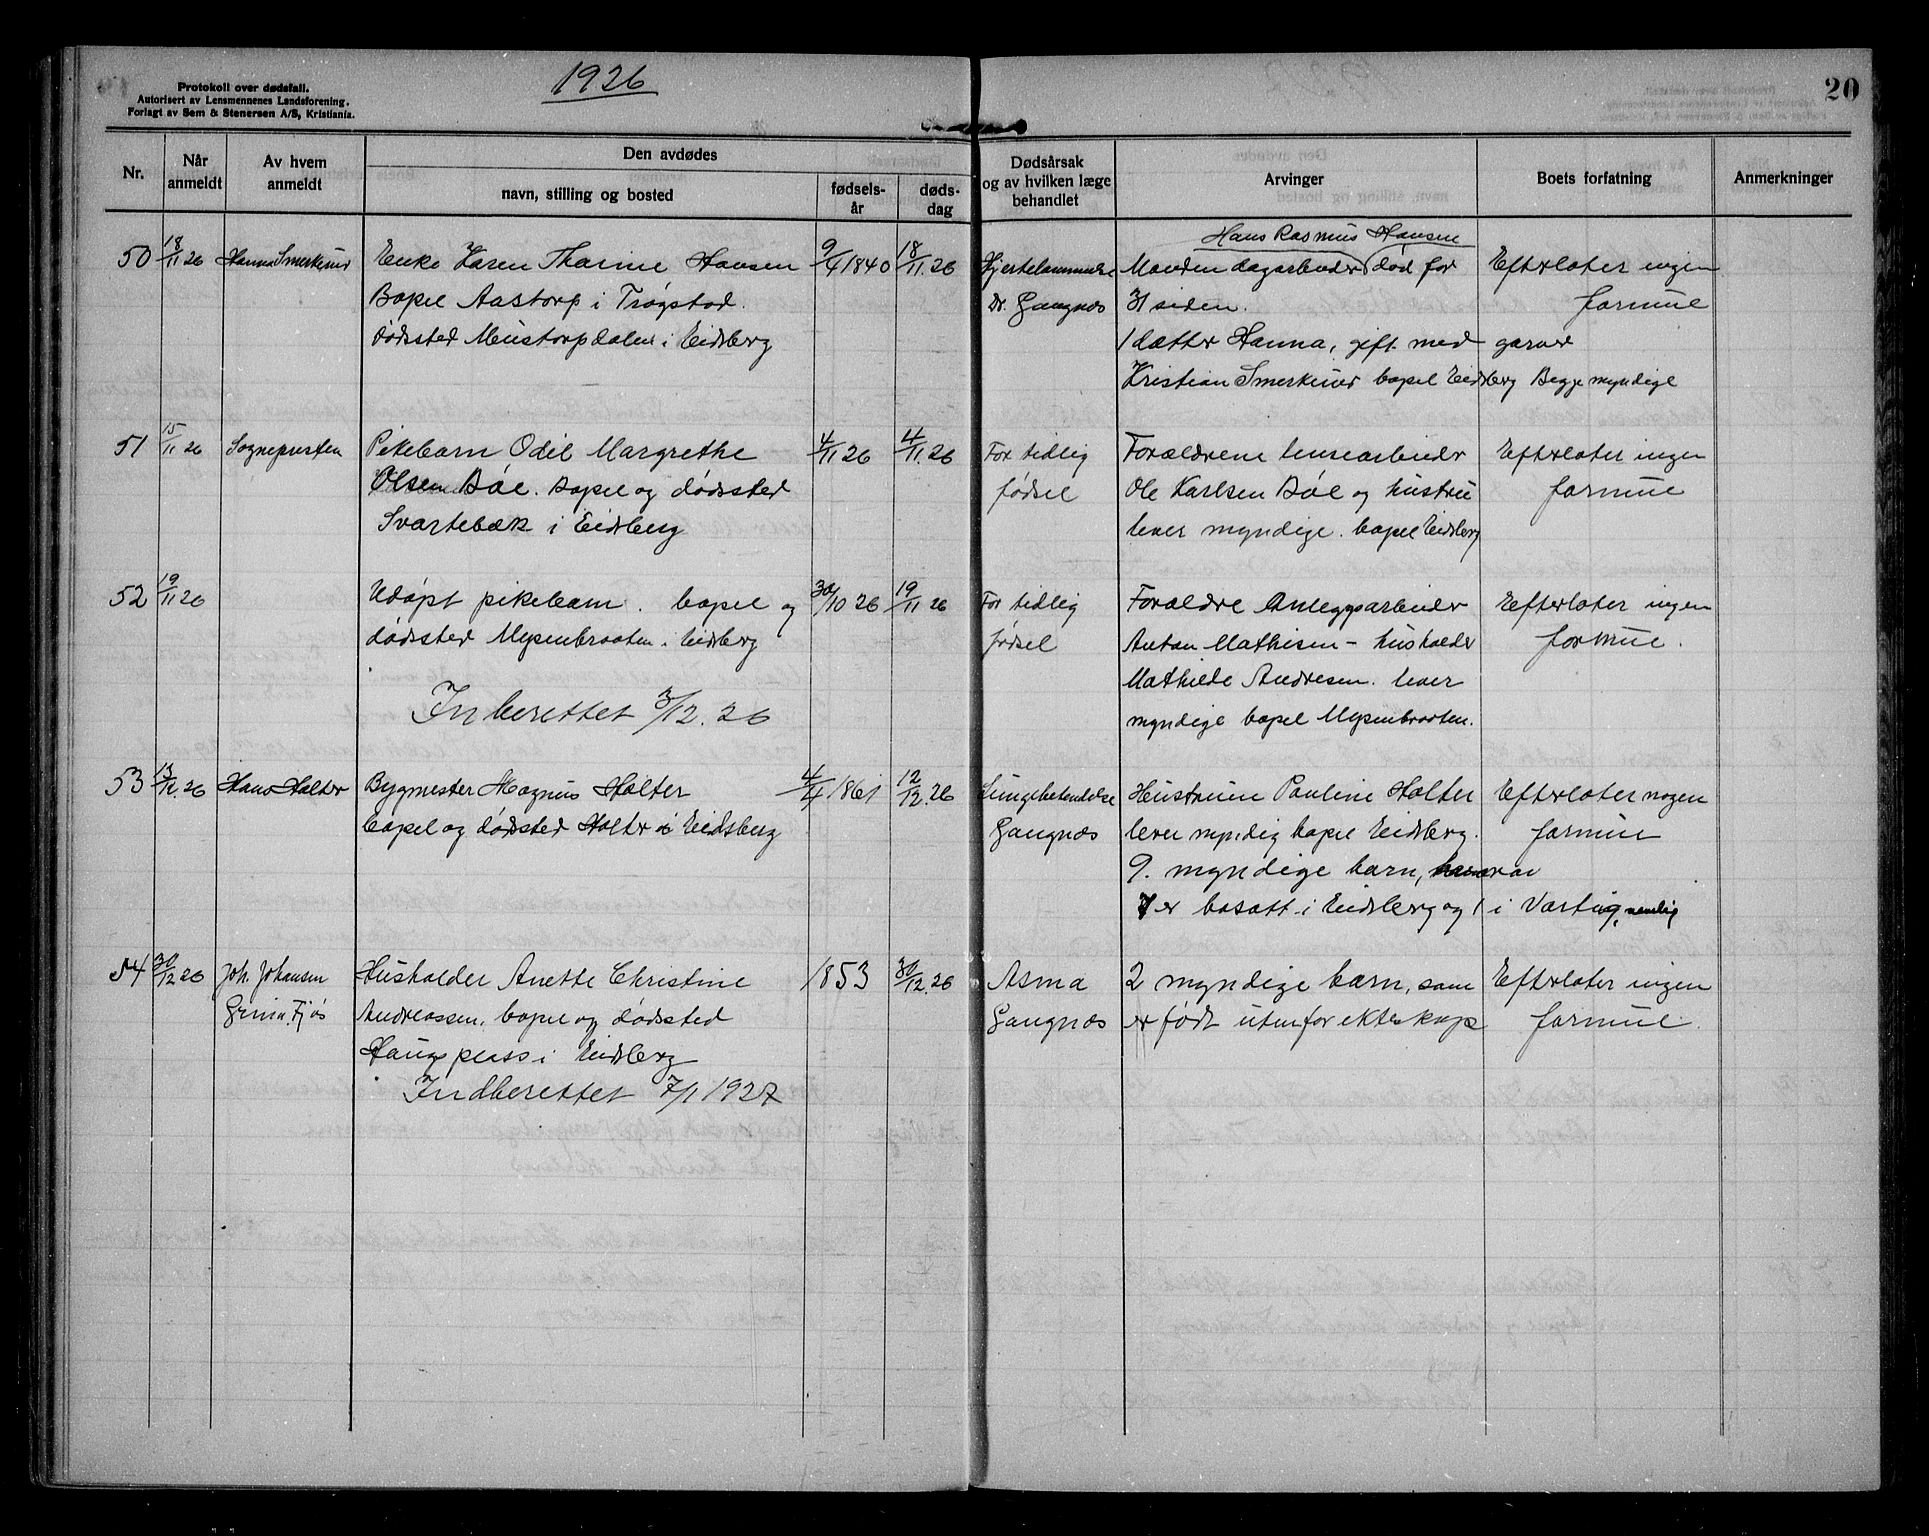 1926
20
Protokoll over dødsfall.
Autorisert av Lensmennenes Landsforening.
Forlagt av Sem & Stenersen A/S, Kristiania.
Nr.
Når anmeldt
Av hvem anmeldt
Den avdødes
navn, stilling og bosted
fødsels-år
døds-dag
Dødsårsak og av hvilken læge behandlet
Arvinger
Boets forfatning
Anmerkninger
50 18/11 26 Hanna Smerkerud Enke Karen Thorine Hansen 9/4 1840 18/11. 26
Bopel Aastorp i Trøgstad.
dødsted Monstorpdalen i Eidsberg
Hjertelammelse
Dr. Gangnæs
Hans Rasmus Hansen
Manden dagarbeider død for
31 siden.
1 datter Hanna, gift med garver
Kristian Smerkerud bopel Eidsberg Begge myndige
Efterlater ingen
formue
51 15/11 26 Sogneprsten Pikebarn Odil Margrethe 4/11 26 4/11. 26
Olsen Bøe. Bopel og dødsted
Svartebæk i Eidsberg
For tidlig
fødsel
Forældrene arbeider
Ole Karlsen Bøe og hustru
lever myndige. bopel Eidsberg
Efterlater ingen
formue
52 19/11 26 Udøpt pikebarn. bopel og 30/10 26 19/11 26
dødsted Mysenbraaten i Eidsberg
For tidlig
fødsel
Forældre Anleggsarbeider
Anton Mathisen – husholder
Mathilde Andresen. lever
myndige bopel Mysenbraaten.
Efterlater ingen
formue.
Inberettet 3/12. 26
53 13/12. 26 Hans Holter Bygmester Magnus Holter 4/4 1861 12/12. 26
bopel og dødsted Holter i Eidsberg
Lungebetendelse
Gangnæs
Hustruen Pauline Holter
lever myndig bopel Eidsberg.
9. myndige barn, hvorav
7 er bosatt i Eidsberg og 1 i Varteig, nemlig
Efterlater nogen
formue
54 30/12 26 Joh. Johansen Husholder Anette Christine 1853 30/12. 26
Grina. Fjøs Andreassen, bopel og dødsted
Haugsplass i Eidsberg
Asma
Gangnæs
2 myndige barn, som
er født utenfor ekteskap
Efterlater ingen
formue.
Indberettet 7/1 1927